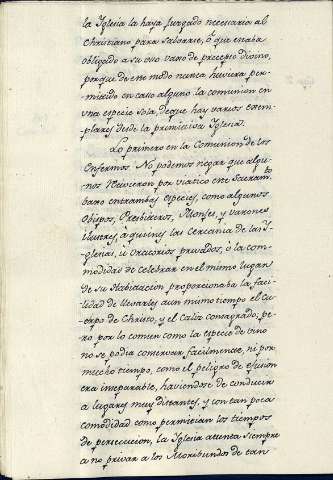 la Iglesia la haya juzgado necesaria al
Christiano para salvarse, ó que estaba
obligado a su uso baxo de precepto divino,
porque de este modo nunca huviera per-
mitido en caso alguno la comunion en
una especie sola, de que hay varios exem-
plares desde la primitiva Iglesia.
Lo primero en la Comunion de los
Enfermos. No podemos negar que algu-
nos recivieron por viatico este Sacram.to
baxo entrambas especies, como algunos
Obispos, Presbiteros, Monjes, y varones
Ilustres, á quienes la cercania de las I-
glesias, u oratorios privados, ó la como-
didad de celebrar en el mismo lugar
de su habitacion proporcionaba la faci-
lidad de llevarles a un mismo tiempo el Cu-
erpo de Christo, y el caliz consagrado; pe-
ro por lo comun como la especie de vino
no se podia conservar facilmente, ni por
mucho tiempo, como el peligro de efusion
era inseparable, haviendose de conducir
a lugares muy distantes, y con tan poca
comodidad como permitian los tiempos
de persecucion, la Iglesia atenta siempre
a no privar a los Moribundos de tan